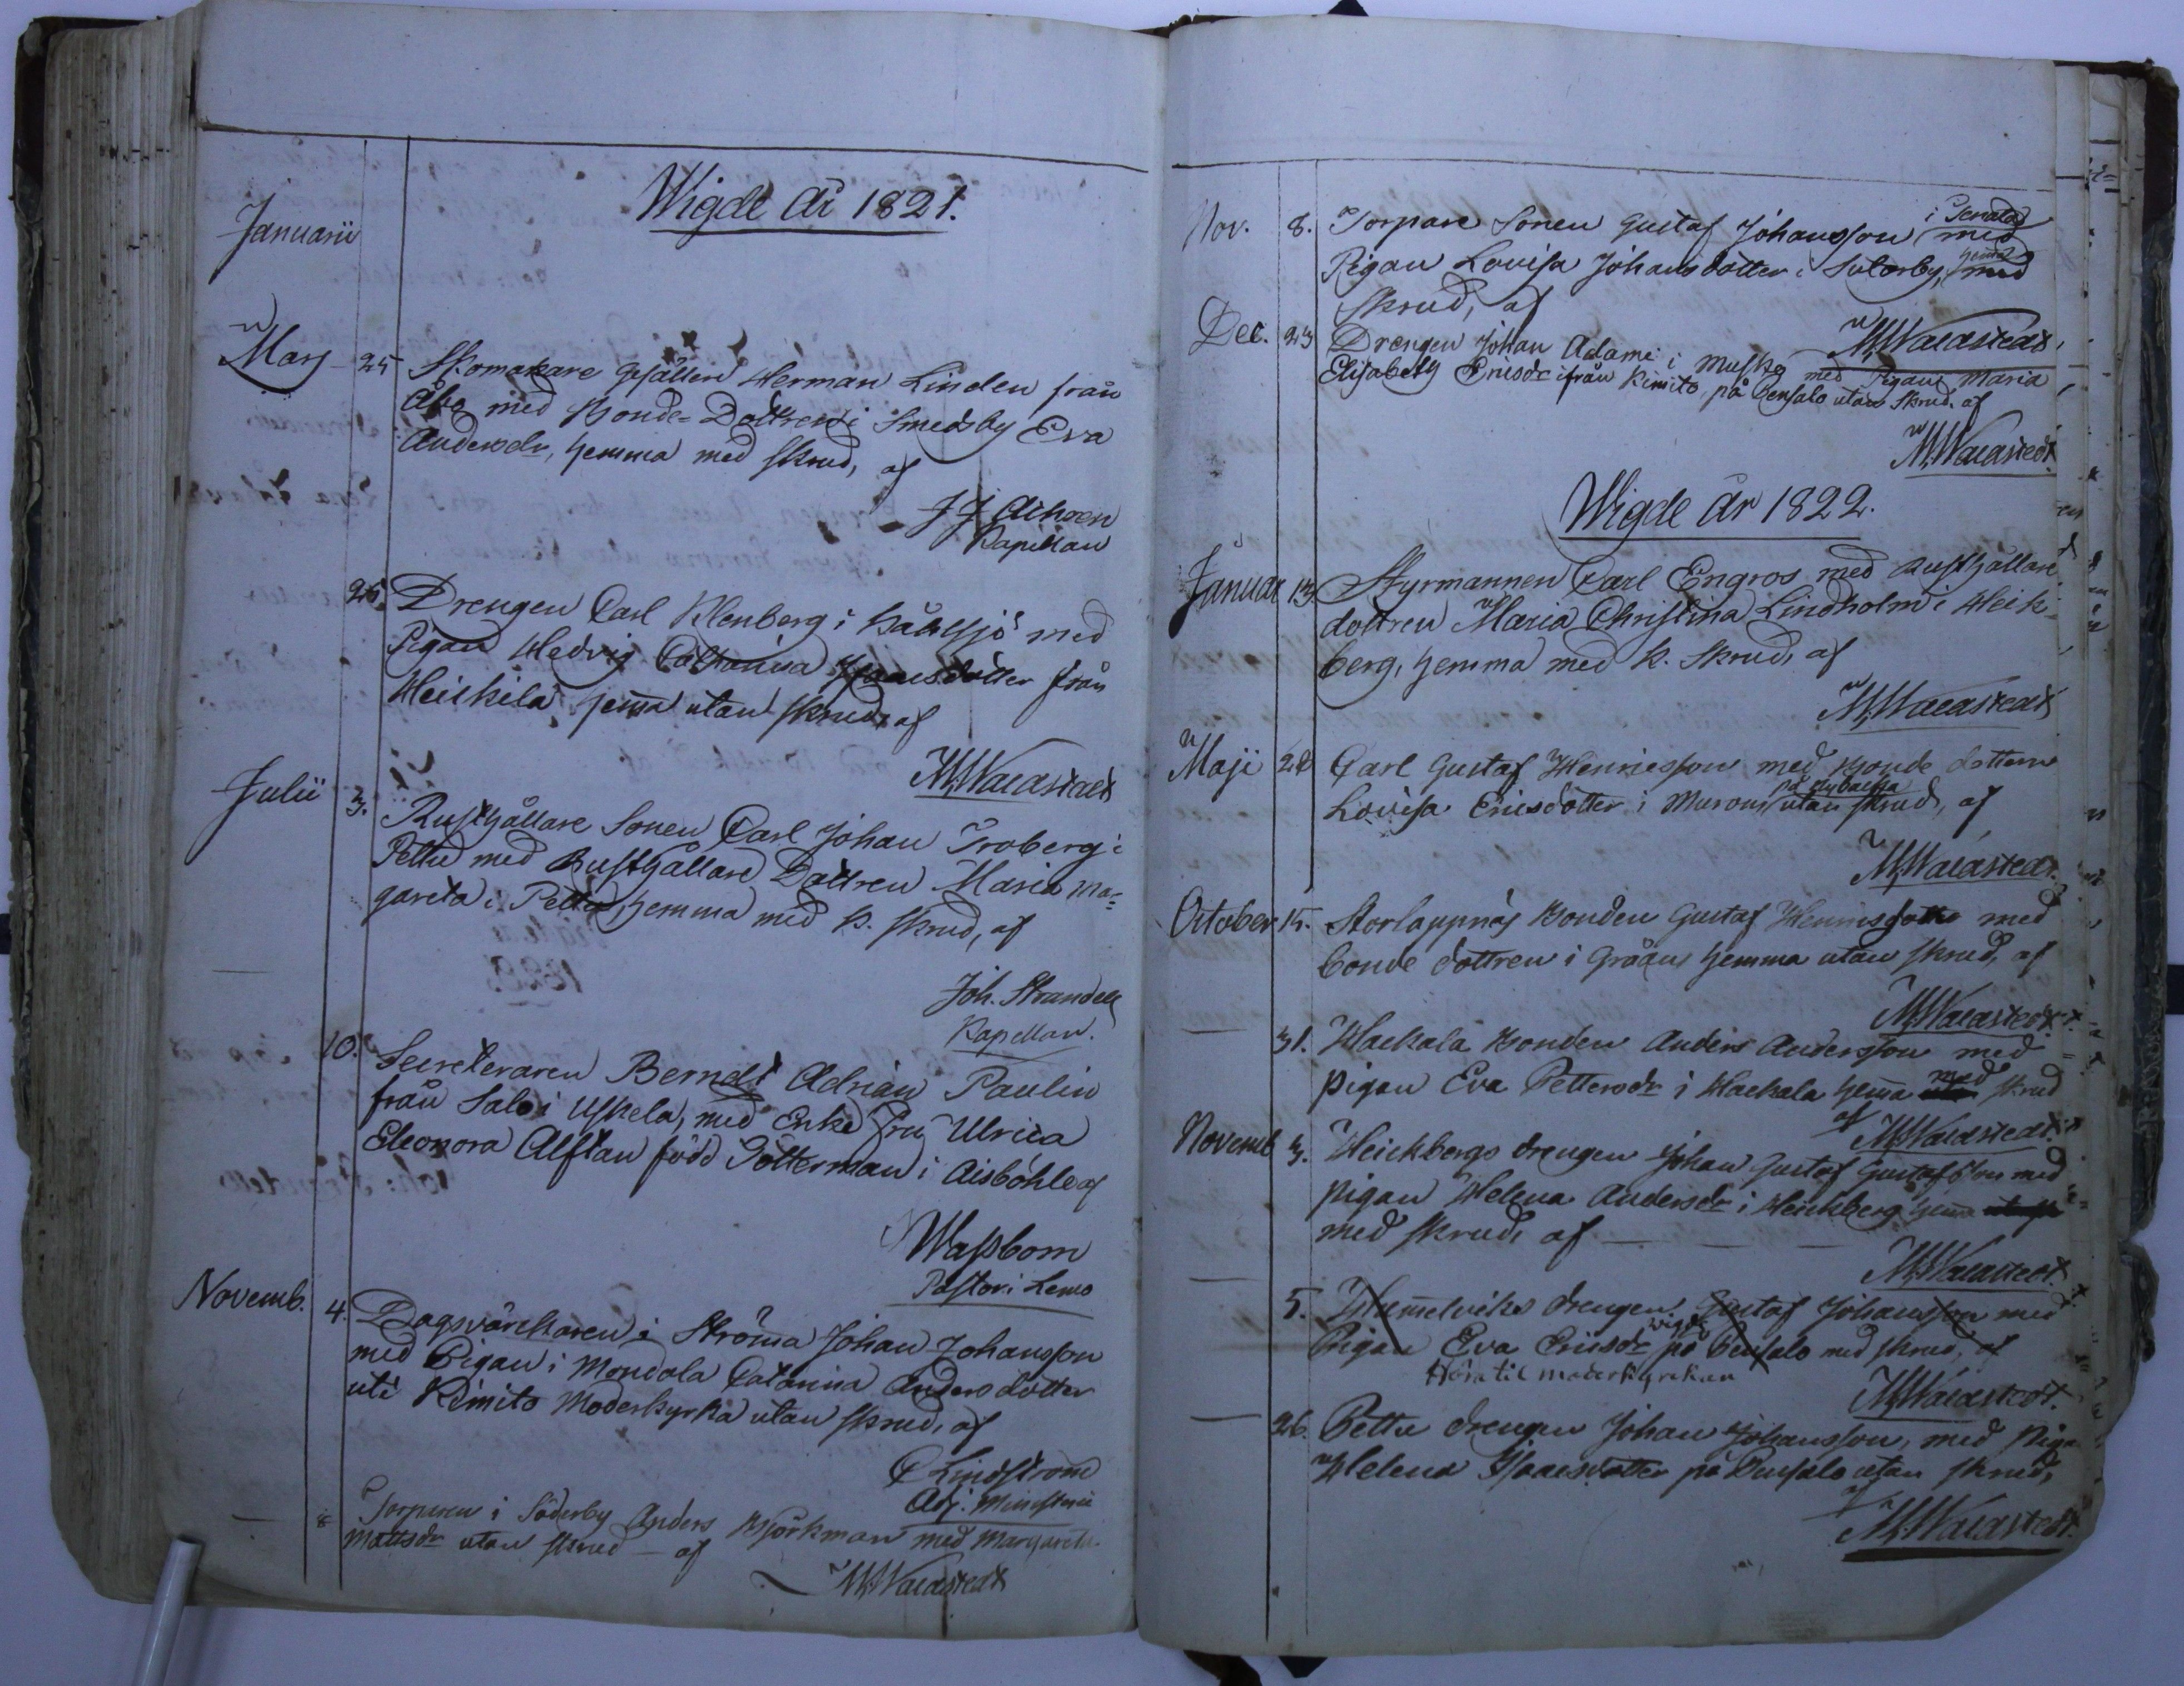 Wigde År 1821.
Januarii
Mars 25 Skomakare Gesällen Herman Linden från
Åbo med Bonde-Dottren i Smedsby Eva
Andersdr, hemma med skrud, af
J J Aihoen
Kapellan
26 Drengen Carl Klenberg i Båtsjö med
Pigan Hedvig Catharina Isaacsdotter från
Heickilä hema utan skrud, af
M. Waldstedt
Julii 3. Rusthållare Sonen Carl Johan Troberg i
Pettu med Rusthållare Dottren Maria Ma-
gareta i Pettu, hemma med B. skrud, af
Joh. Strandell
Kapellan.
10. Secreteraren Berndt Adrian Paulin
från Salo i Uskela, med Enke Fru Ulrica
Eleonora Alftan född Götterman i Aisböhle af
Wassbom
Pastor i Lemo
Novemb. 4. Dagsvärckaren i Ströma Johan Johansson
med Pigan i Mondola Catarina Andersdotter
uti Kimito Moderkyrka utan skrud, af
C Lindström
Adj. Ministerii
— 8 Torparen i Söderby Anders Björkman med Margareta
Mattsdr utan skrud — af
M. Waldstedt
Nov. 8. Torpare Sonen Gustaf Johansson i Genate med
Pigan Lovisa Johansdotter i Sutarby, hema med
skrud, af
M. Waldstedt,
Dec. 23 Drengen Johan Adami i Musko med Pigan Maria
Elisabeth Ericsdr ifrån Kimito, på Bensalo utan skrud. af
M. Waldstedt.
Wigde År 1822.
Januar 13 Styrmannen Carl Engros med Rusthållare
dottren Maria Christina Lindholm i Heick-
berg, hemma med K. Skrud, af
M. Waldstedt
Maji 28 Carl Gustaf Henricsson med Bonde dottern
på Nybacka
Lovisa Ericsdotter i Murons utan skrud, af
M. Waldstedt.
October 15. Storlappnäs Bonden Gustaf Henricsdotter med
bonde dottren i Gråäns hemma utan skrud, af
M. Waldstedt.
— 31. Hackala Bonden Anders Andersson med
pigan Eva Pettersdr i Hackala hema med skrud
af M. Waldstedt.
Novemb 3. Heickbergs drengen Johan Gustaf Gustafsson med
pigan Helena Andersdr i Heickberg hem
med skrud, af —
M. Waldstedt.
— 5. Hummelviks drengen Gustaf Johansson med
Pigan Eva Ericsdr vigde på Bensalo med skrud, af
Höra til moderkyrckan
M. Waldstedt.
— 26. Pettu drengen Johan Johansson, med Piga
Helena Isaacsdotter på Bensalo utan skrud,
af
M. Waldstedt.